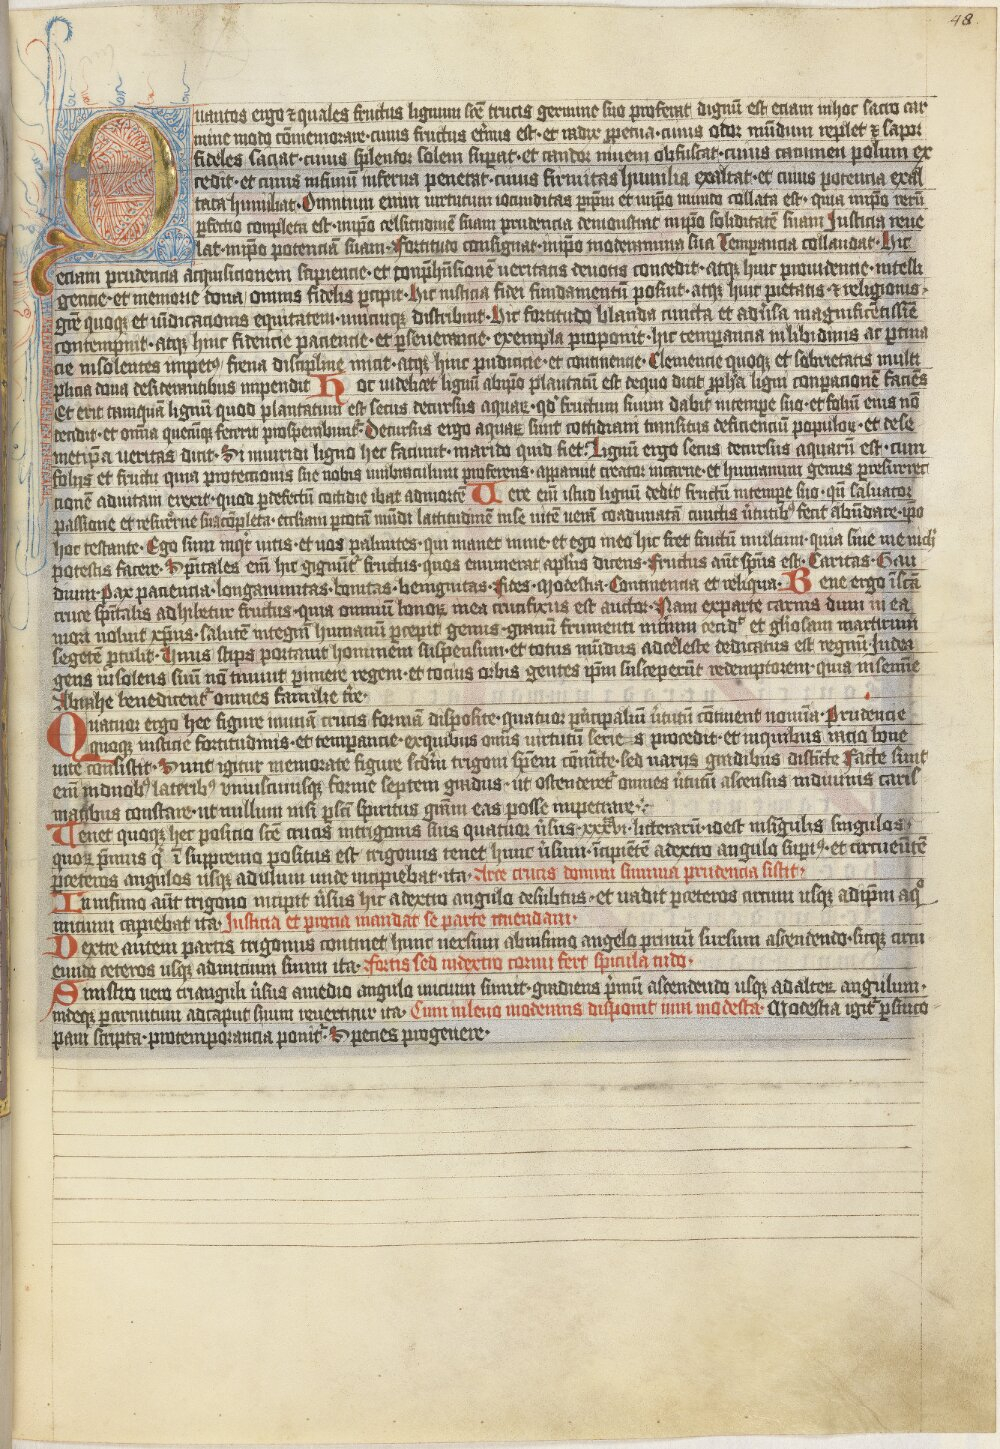 48
Quantos ergo ⁊ quales fructus lignum scē crucis germine suo proferat dignū est eciam inhoc sacro car
mine modo cōmemorare · cuius fructus et̾nus est · et radix ꝑpetua · cuius odor mūdum replet ⁊ sapor
fideles saciat · cuius splendor solem suꝑat · et candor niuem obfuscat · cuius cacumen polum ex
cedit · et cuius infimū inferna penetrat · cuius firmitas humilia exaltat · et cuius potencia exal
tata humiliat · Omnium enim virtutum iocunditas ꝑ xp̄m et in xp̄o mundo collata est · quia in xp̄o rerū
ꝑfectio conpleta est · in xp̄o celsitudinē suam prudencia demonstrat in xp̄o soliditatē suam Iusticia reue
lat · in xp̄o potenciā suam · Fortitudo consignat · in xp̄o moderamina sua Temꝑancia collaudat · Hic
eciam prudencia acquisicionem sapiencie · et conp̄hensionē veritatis deuotis concedit · atqꝫ hinc prouidencie · intelli
gencie · et memorie dona omnis fidelis ꝑcipit · Hic iusticia fidei fundamentū posuit · atqꝫ hinc pietatis · ⁊ religionis ·
grē quoqꝫ et iudicacionis equitatem · vnicuiqꝫ distribuit · Hic fortitudo blanda cuncta et adu̾sa magnificētissīē
contempnit · atqꝫ hinc fidencie paciencie · et ꝑseuerancie · exempla proponit · hic temperancia in libidinis ac ꝑtina
cie insolentes impetꝰ frena discipline inicit · atqꝫ hinc pudicicie · et continencie · Clemencie quoqꝫ et sobrietatis multi
plicia dona desiderantibus impendit Hoc videlicet lignū ab ip̄o plantatū est de quo dicit ꝓph̄a ligni conparacionē faciēs
Et erit tamquā lignū quod plantatum est secus decursus aquaꝝ · qd̓ fructum suum dabit in tempe suo · et foliū eius nō
decidit · et om̄ia quecūqꝫ fecerit prosperabunt̾ · Decursus ergo aquaꝝ sunt cottidiani transitus deficienciū populoꝝ · et de se
metip̄a veritas dicit · Si in viridi ligno hec faciunt · in arido quid fiet · Lignū ergo secus decursus aquarū est · cum
folijs et fructu quia protectionis sue nobis vmbraculum proferens · apparuit creator in carne · et humanum genus ꝑ resurrec
cionē ad vitam erexit · quod ꝑ defectū cottidie ibat ad mortē Vere em̄ istud lignū dedit fructū in tempe suo · qn̄ saluator
passione et resurrectione sua cōpleta · ecclesiam ꝑ totā mūdi latitudinē in se vite vera coadunatā cunctis v̓tutibꝰ fecit abūdare · ip̄o
hoc testante · Ego sum inqͥt vitis · et vos palmites · qui manet in me · et ego in eo hic fert fructū multum · quia sine me nichil
potestis facere · Sp̄itales em̄ hic gignūt̾ fructus · quos enumerat apl̄us dicens · Fructus aūt sp̄us est · Caritas · Gau
dium · Pax paciencia · longanimitas · bonitas · benignitas · Fides · Modestia · Continencia et reliqua · Bene ergo ī scā
cruce sp̄italis adhibetur fructus · quia omniū bonoꝝ in ea crucifixus est auctor · Nam ex parte carnis dum in ea
mori voluit xp̄us · salutē integrā humanū ꝑcepit genus · granū frumenti in t̾ram cecidͭ et gliosam martirum
segetē ꝑtulit · Vnus stips portauit hominem suspensum · et totus mūdus ad celeste dedicatus est regnū · Iudee
gens insolens suū nō timuit ꝑimere regem · et tocius orbis gentes ip̄m susceperūt redemptorem · quia in semine
Abrahe benedicent̾ omnes familie t̾re ·
Quatuor ergo hec figure in vnā crucis formā disposite · quatuor pͥncipaliū v̓tutū cōtinent nomīa · Prudencie
quoqꝫ iusticie fortitudinis · et temperancie · ex quibus om̄is virtutū series procedit · et in quibus inicio bone
vite consistit · Sunt igitur memorate figure scdm̄ trigoni sp̄em cōiūcte · sed varijs gradibus distīcte Facte sunt
em̄ in duobꝰ lateribꝰ vniuscuiusqꝫ forme septem gradus · ut ostenderet̾ omnes v̓tutū ascensus in diuinis caris
matibus constare · ut nullum nisi ꝑ scī spiritus grām eas posse impetrare ·
Tenet quoqꝫ hec posicio scē crucis in trigonis suis quatuor v̓sus · xxxvi · litterarū · id est in singulis singulos ·
quoꝝ pͥmus qͥ ī supremo positus est trigonus tenet hunc v̓sum · īcipiētē a dextro angulo suꝑiꝰ · et circueūtē
ꝑ ceteros angulos usqꝫ ad illum unde incipiebat · ita · Arce crucis domini summa prudencia sistit ·
In infimo aūt trigono incipit v̓sus hic a dextro angulo desubtus · et vadit ꝑ ceteros circum usqꝫ ad ip̄m a quo
inicium capiebat ita · Iusticia et prona mandat se parte tenendam ·
Dextre autem partis trigonus continet hunc versum ab infimo angelo primū sursum ascendendo · sicqꝫ circu
eundo ceteros usqꝫ ad inicium suum ita · Fortis sed in dextro cornu fert spicula cudo ·
Sinistro vero trianguli v̓sus a medio angulo inicium sumit · gradiens pͥmū ascendendo usqꝫ ad alteꝝ angulum ·
indeqꝫ ꝑ circuitum ad caput suum reuertitur ita · Cum in leuo moderamina disponit inni modesta · Modestia igit̾ ꝑ sinco
pam scripta · pro temporancia ponit̾ · Species pro genere ·